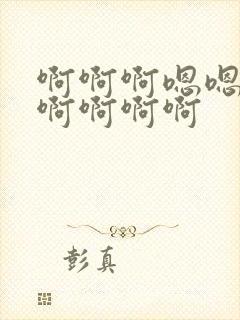 啊啊啊嗯嗯
啊啊啊啊
彭真